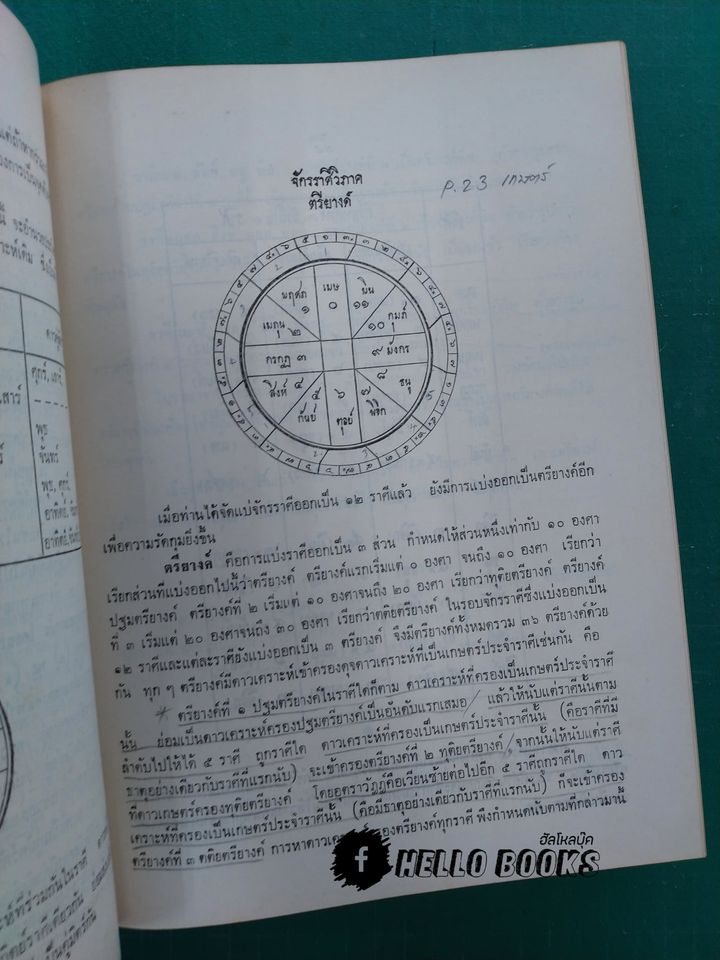 จักรราศีวิภาค
ตรียางค์
P.23 เกษตร์
เมษ ๐
พฤศภ ๑
เมถุน ๒
กรกฎ ๓
สิงห์ ๔
กันย์ ๕
ตุลย์ ๖
พิจิก ๗
ธนู ๘
มังกร ๙
กุมภ์ ๑๐
มีน ๑๑
เมื่อท่านได้จัดแบ่งจักรราศีออกเป็น ๑๒ ราศีแล้ว ยังมีการแบ่งออกเป็นตรียางค์อีก
เพื่อความรัดกุมยิ่งขึ้น
ตรียางค์ คือการแบ่งราศีออกเป็น ๓ ส่วน กำหนดให้ส่วนหนึ่งเท่ากับ ๑๐ องศา
เรียกส่วนที่แบ่งออกไปนี้ว่าตรียางค์ ตรียางค์แรกเริ่มแต่ ๐ องศา จนถึง ๑๐ องศา เรียกว่า
ปฐมตรียางค์ ตรียางค์ที่ ๒ เริ่มแต่ ๑๐ องศาจนถึง ๒๐ องศา เรียกว่าทุติยตรียางค์ ตรียางค์
ที่ ๓ เริ่มแต่ ๒๐ องศาจนถึง ๓๐ องศา เรียกว่าตติยตรียางค์ ในรอบจักรราศีซึ่งแบ่งออกเป็น
๑๒ ราศีและแต่ละราศียังแบ่งออกเป็น ๓ ตรียางค์ จึงมีตรียางค์ทั้งหมดรวม ๓๖ ตรียางค์ด้วย
กัน ทุก ๆ ตรียางค์มีดาวเคราะห์เข้าครองดุจดาวเคราะห์ที่เป็นเกษตร์ประจำราศีเช่นกัน คือ
* ตรียางค์ที่ ๑ ปฐมตรียางค์ในราศีใดก็ตาม ดาวเคราะห์ที่ครองเป็นเกษตร์ประจำราศี
นั้น ย่อมเป็นดาวเคราะห์ครองปฐมตรียางค์เป็นอันดับแรกเสมอ/ แล้วให้นับแต่ราศีนั้นตาม
ลำดับไปให้ได้ ๕ ราศี ถูกราศีใด ดาวเคราะห์ที่ครองเป็นเกษตร์ประจำราศีนั้น (คือราศีที่มี
ธาตุอย่างเดียวกับราศีที่แรกนับ) จะเข้าครองตรียางค์ที่ ๒ ทุติยตรียางค์/ จากนั้นให้นับแต่ราศี
ที่ดาวเกษตร์ครองทุติยตรียางค์ โดยอุตราวัฏฏ์คือเวียนซ้ายต่อไปอีก ๕ ราศีถูกราศีใด ดาว
เคราะห์ที่ครองเป็นเกษตร์ประจำราศีนั้น (คือมีธาตุอย่างเดียวกับราศีที่แรกนับ) ก็จะเข้าครอง
ตรียางค์ที่ ๓ ตติยตรียางค์ การหาดาวเค องตรียางค์ทุกราศี พึงกำหนดนับตามที่กล่าวมานี้
ฮัลโหลบุ๊ค
HELLO BOOKS
ศุกร์, เสาร์
พุธ
จันทร์
พุธ, ศุกร์,